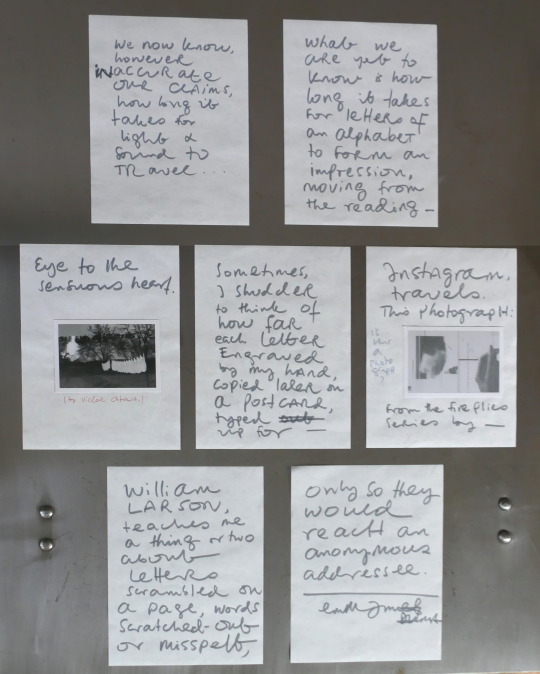 We now know,
however
inaccurate
our claims,
how long it
takes for
light &
sound to
travel...
what we
are yet to
know is how
long it takes
for letters of
an alphabet
to form an
impression,
moving from
the reading —
Eye to the
sensuous heart.
Sometimes,
I shudder
to think of
how far
each letter
Engraved
by my hand,
copied later on
a postcard,
typed
up for —
Instagram,
travels.
This photograph:
is this a photograph?
From the fireflies
series by —
William
Larson,
teaches me
a thing or two
about
letters
scrambled on
a page, words
scratched-out
or misspelt,
only so they
would
reach an
anonymous
addressee.